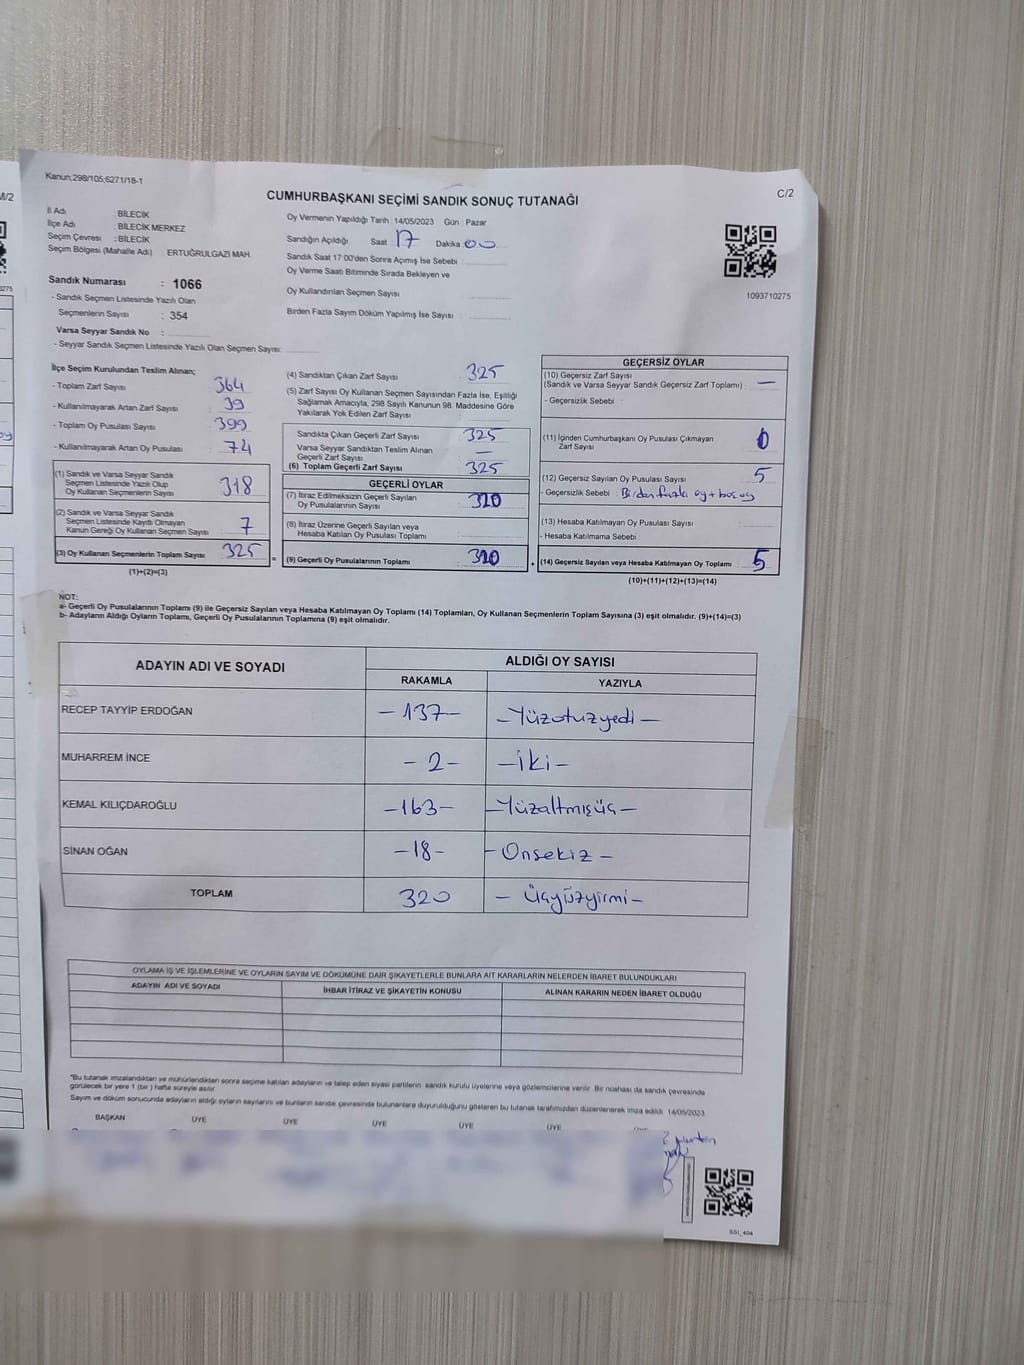 Kanun;298/105;6271/18-1
C/2
M/2
CUMHURBAŞKANI SEÇİMİ SANDIK SONUÇ TUTANAĞI
İl Adı : BİLECİK
İlçe Adı : BİLECİK MERKEZ
Seçim Çevresi : BİLECİK
Seçim Bölgesi (Mahalle Adı) : ERTUĞRULGAZİ MAH.
Oy Vermenin Yapıldığı Tarih : 14/05/2023 Gün : Pazar
Sandığın Açıldığı Saat 17 Dakika 00
Sandık Saat 17:00'den Sonra Açımış İse Sebebi :
Oy Verme Saati Bitiminde Sırada Bekleyen ve
Oy Kullandırılan Seçmen Sayısı :
Birden Fazla Sayım Döküm Yapılmış İse Sayısı :
1093710275
Sandık Numarası : 1066
- Sandık Seçmen Listesinde Yazılı Olan
Seçmenlerin Sayısı : 354
Varsa Seyyar Sandık No :
- Seyyar Sandık Seçmen Listesinde Yazılı Olan Seçmen Sayısı:
İlçe Seçim Kurulundan Teslim Alınan;
- Toplam Zarf Sayısı : 364
- Kullanılmayarak Artan Zarf Sayısı : 39
- Toplam Oy Pusulası Sayısı : 399
- Kullanılmayarak Artan Oy Pusulası : 74
(1) Sandık ve Varsa Seyyar Sandık
Seçmen Listesinde Yazılı Olup
Oy Kullanan Seçmenlerin Sayısı : 318
(2) Sandık ve Varsa Seyyar Sandık
Seçmen Listesinde Kayıtlı Olmayan
Kanun Gereği Oy Kullanan Seçmen Sayısı : 7
(3) Oy Kullanan Seçmenlerin Toplam Sayısı : 325
(1)+(2)=(3)
(4) Sandıktan Çıkan Zarf Sayısı : 325
(5) Zarf Sayısı Oy Kullanan Seçmen Sayısından Fazla İse, Eşitliği
Sağlamak Amacıyla, 298 Sayılı Kanunun 98. Maddesine Göre
Yakılarak Yok Edilen Zarf Sayısı :
Sandıkta Çıkan Geçerli Zarf Sayısı : 325
Varsa Seyyar Sandıktan Teslim Alınan
Geçerli Zarf Sayısı : —
(6) Toplam Geçerli Zarf Sayısı : 325
GEÇERLİ OYLAR
(7) İtiraz Edilmeksizin Geçerli Sayılan
Oy Pusulalarının Sayısı : 320
(8) İtiraz Üzerine Geçerli Sayılan veya
Hesaba Katılan Oy Pusulası Toplamı :
(9) Geçerli Oy Pusulalarının Toplamı : 320
GEÇERSİZ OYLAR
(10) Geçersiz Zarf Sayısı
(Sandık ve Varsa Seyyar Sandık Geçersiz Zarf Toplamı) : —
- Geçersizlik Sebebi :
(11) İçinden Cumhurbaşkanı Oy Pusulası Çıkmayan
Zarf Sayısı : 0
(12) Geçersiz Sayılan Oy Pusulası Sayısı : 5
- Geçersizlik Sebebi : Birden fazla oy + boş oy
(13) Hesaba Katılmayan Oy Pusulası Sayısı :
- Hesaba Katılmama Sebebi :
(14) Geçersiz Sayılan veya Hesaba Katılmayan Oy Toplamı : 5
(10)+(11)+(12)+(13)=(14)
NOT:
a- Geçerli Oy Pusulalarının Toplamı (9) ile Geçersiz Sayılan veya Hesaba Katılmayan Oy Toplamı (14) Toplamları, Oy Kullanan Seçmenlerin Toplam Sayısına (3) eşit olmalıdır. (9)+(14)=(3)
b- Adayların Aldığı Oyların Toplamı, Geçerli Oy Pusulalarının Toplamına (9) eşit olmalıdır.
ADAYIN ADI VE SOYADI
ALDIĞI OY SAYISI
RAKAMLA YAZIYLA
RECEP TAYYİP ERDOĞAN - 137 - - Yüzotuzyedi -
MUHARREM İNCE - 2 - - iki -
KEMAL KILIÇDAROĞLU - 163 - - Yüzaltmışüç -
SİNAN OĞAN - 18 - - Onsekiz -
TOPLAM 320 - Üçyüzyirmi -
OYLAMA İŞ VE İŞLEMLERİNE VE OYLARIN SAYIM VE DÖKÜMÜNE DAİR ŞİKAYETLERLE BUNLARA AİT KARARLARIN NELERDEN İBARET BULUNDUKLARI
ADAYIN ADI VE SOYADI İHBAR İTİRAZ VE ŞİKAYETİN KONUSU ALINAN KARARIN NEDEN İBARET OLDUĞU
"Bu tutanak imzalandıktan ve mühürlendikten sonra seçime katılan adayların ve talep eden siyasi partilerin sandık kurulu üyelerine veya gözlemcilerine verilir. Bir nüshası da sandık çevresinde
görülecek bir yere 1 (bir ) hafta süreyle asılır.
Sayım ve döküm sonucunda adayların aldığı oyların sayılarını ve bunların sandık çevresinde bulunanlara duyurulduğunu gösteren bu tutanak tarafımızdan düzenlenerek imza edildi. 14/05/2023
BAŞKAN ÜYE ÜYE ÜYE ÜYE ÜYE
SSI_404